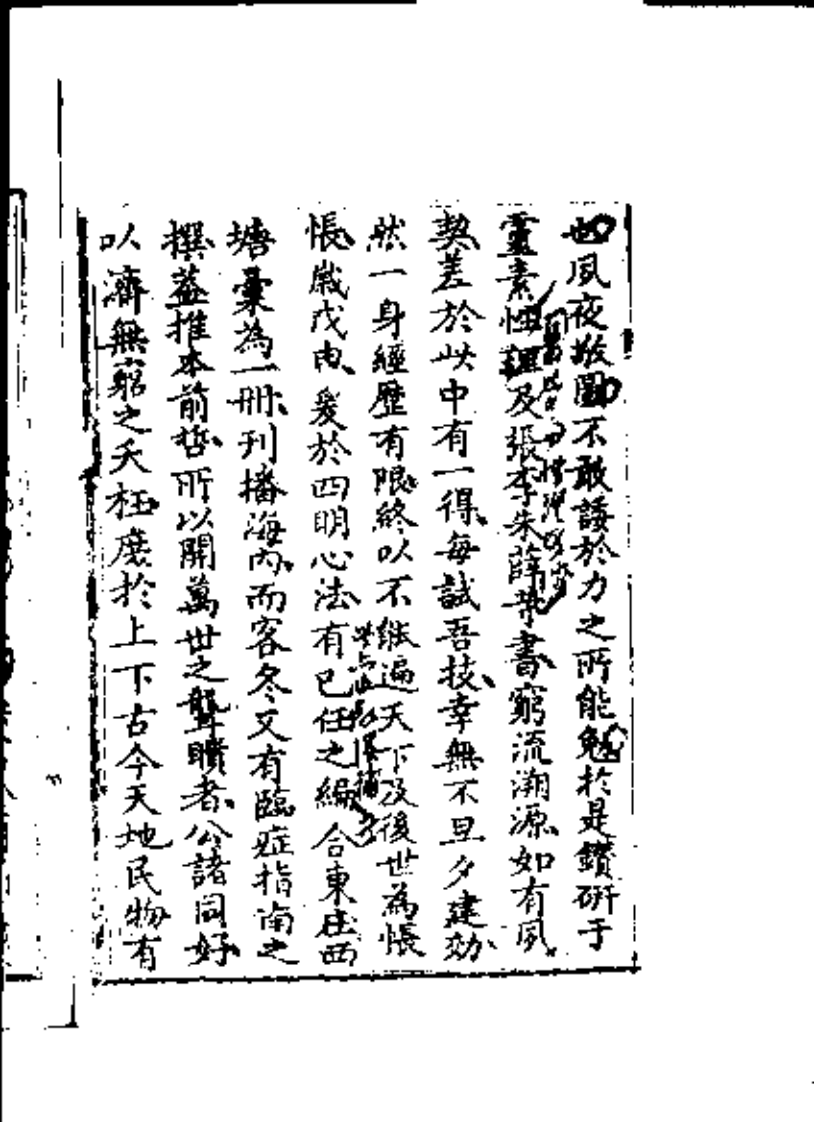 也夙夜敬圖不敢諉於力之所能勉於是鑽硏于
靈素性理及張李朱薛等書窮流溯源如有夙
契差於此中有一得每試吾技幸無不旦夕建効
然一身經歷有限終以不繼遍天下及後世為悵
悵歲戊申爰於四明心法有己任之編合東庄西
塘彙為一冊刊播海內而客冬又有臨症指南之
撰蓋推本前哲所以開萬世之聾聵者公諸同好
以濟無窮之夭枉庶於上下古今天地民物有